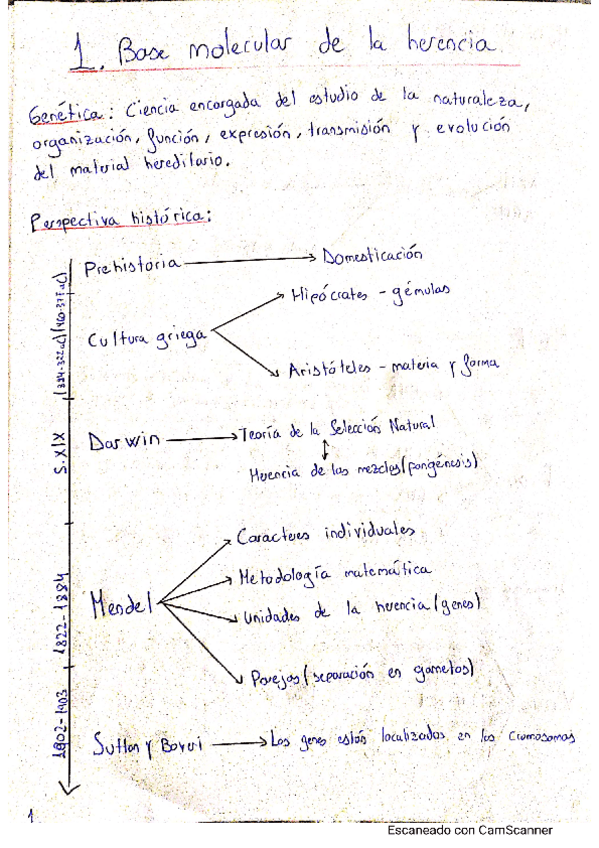 1. Base molecular de la herencia
Genética: Ciencia encargada del estudio de la naturaleza,
organización, función, expresión, transmisión y evolución
del material hereditario.
Perspectiva histórica:
Prehistoria → Domesticación
(384-322 aC) (460-377 aC)
Cultura griega
Hipócrates - gémulas
Aristóteles - materia y forma
S. XIX
Darwin → Teoría de la Selección Natural
Herencia de las mezclas (pangénesis)
1822-1884
Mendel
Caracteres individuales
Metodología matemática
Unidades de la herencia (genes)
Parejas (separación en gametos)
1902-1903
Sutton y Boveri → Los genes están localizados en los cromosomas
1
Escaneado con CamScanner